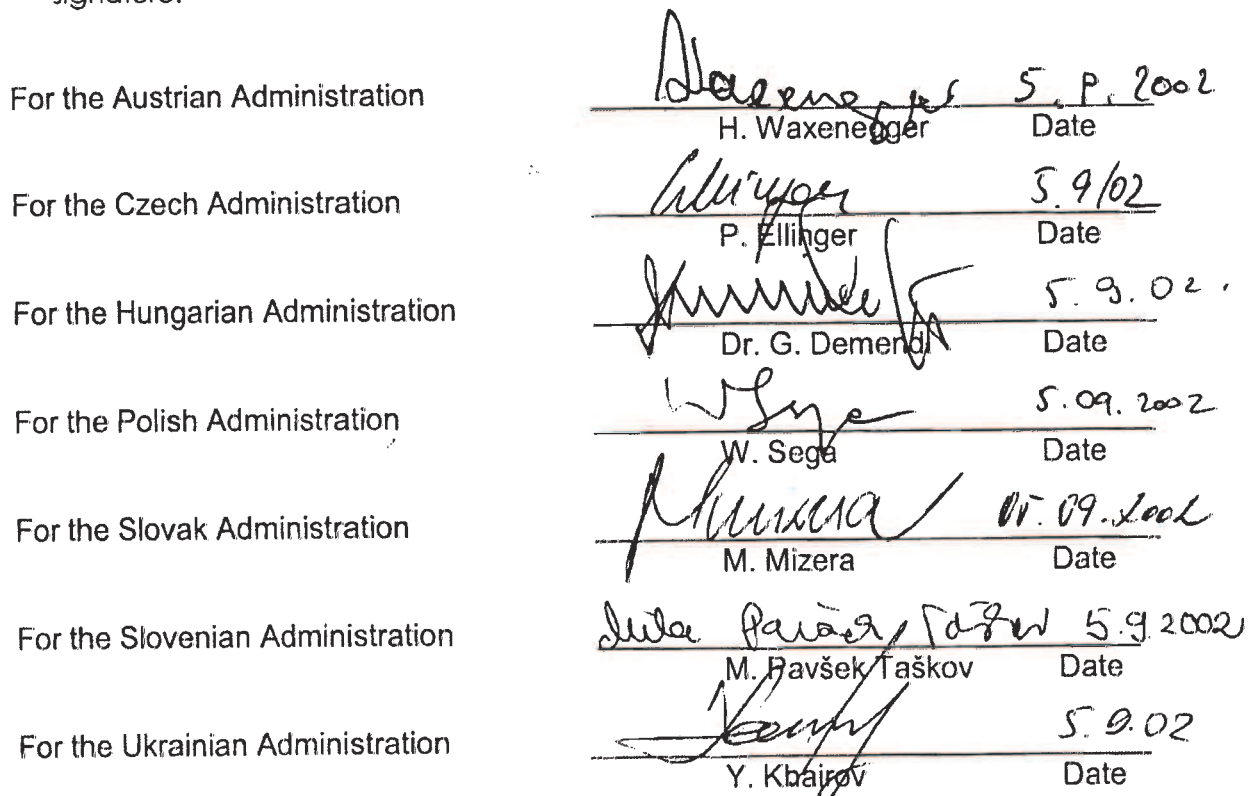 signature.
For the Austrian Administration 5. 9. 2002
H. Waxenegger Date
For the Czech Administration 5.9/02
P. Ellinger Date
For the Hungarian Administration 5.9.02.
Dr. G. Demendi Date
For the Polish Administration W Sega 5.09.2002
W. Sega Date
For the Slovak Administration 05.09.2002
M. Mizera Date
For the Slovenian Administration 5.9.2002
M. Pavšek Taškov Date
For the Ukrainian Administration 5.9.02
Y. Khairov Date